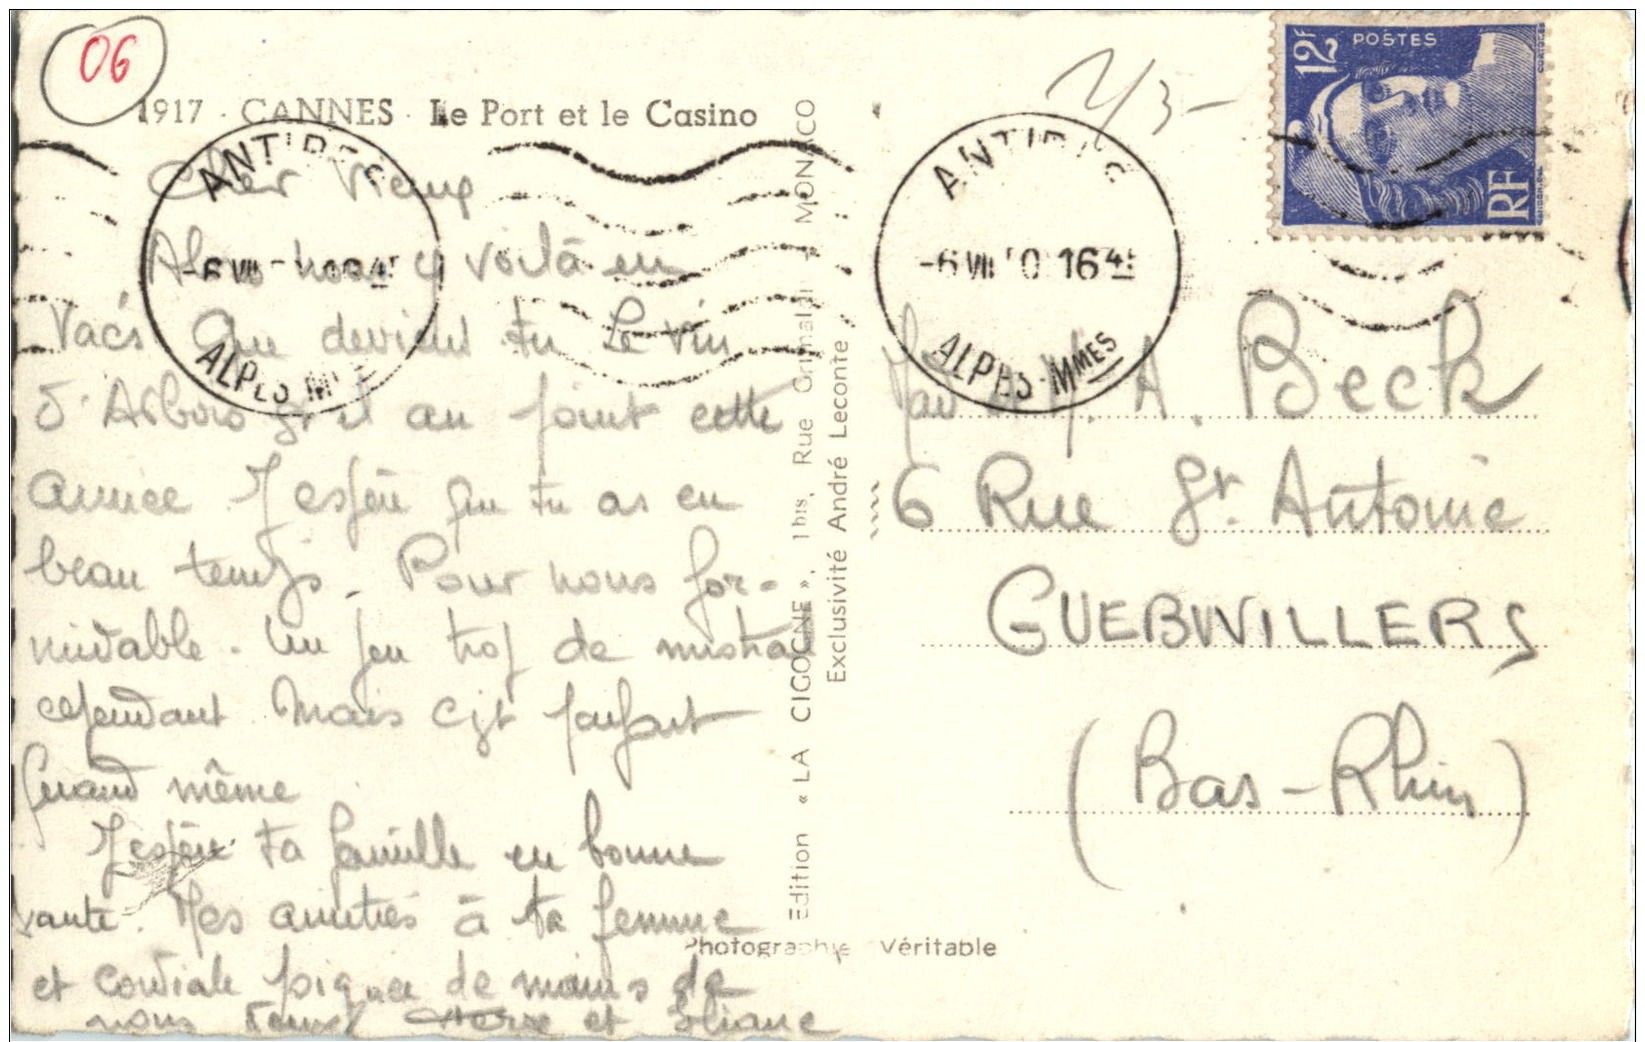 06
1917 · CANNES · Le Port et le Casino
Cher Vieux
Alors nous voilà en
Vacs Que deviens tu Le vin
d'Arbois est il au point cette
année J'espère que tu as eu
beau temps. Pour nous for-
midable. Un peu trop de mistral
cependant Mais c'est parfait
quand même
J'espère ta famille en bonne
santé. Mes amitiés à ta femme
et cordiale poignée de mains de
nous et Eliane
Edition « LA CIGOGNE », 1 bis, Rue Grimaldi - MONACO
Exclusivité André Leconte
Photographie Véritable
ANTIBES
-6 VII 16 45
ALPES MMES
ANTIBES
-6 VII 50 16 45
ALPES-MMES
12F
POSTES
RF
A. Beck
6 Rue St. Antoine
GUEBWILLERS
(Bas-Rhin)